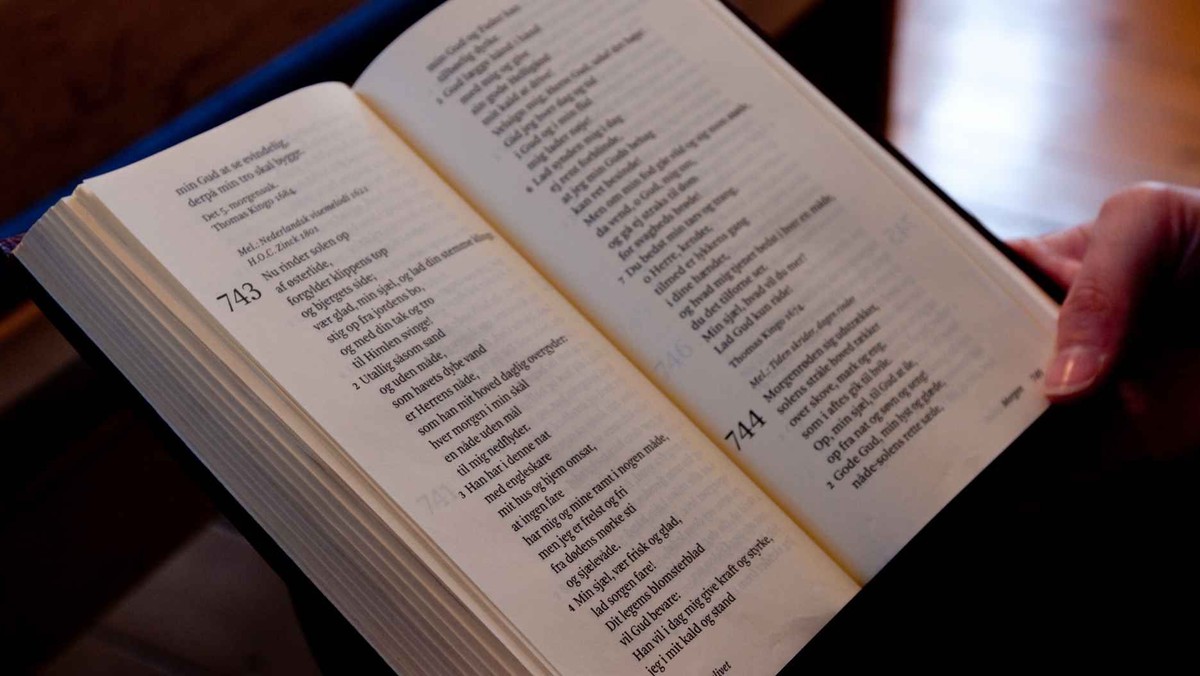 min Gud at se evindelig,
derpå min tro skal bygge.
Det 5. morgensuk.
Thomas Kingo 1684.
Mel.: Nederlandsk visemelodi 1622
H.O.C. Zinck 1801
743 Nu rinder solen op
af østerlide,
forgylder klippens top
og bjergets side;
vær glad, min sjæl, og lad din stemme klinge,
stig op fra jordens bo,
og med din tak og tro
til Himlen svinge!
2 Utallig såsom sand
og uden måde,
som havets dybe vand
er Herrens nåde,
som han mit hoved daglig overgyder:
hver morgen i min skål
en nåde uden mål
til mig nedflyder.
3 Han har i denne nat
med engleskare
mit hus og hjem omsat,
at ingen fare
har mig og mine ramt i nogen måde,
men jeg er frelst og fri
fra dødens mørke sti
og sjælevåde.
4 Min sjæl, vær frisk og glad,
lad sorgen fare!
Dit legems blomsterblad
vil Gud bevare:
Han vil i dag mig give kraft og styrke,
jeg i mit kald og stand
livet
min Gud og Fader kan
tilbørlig dyrke.
2 Gud lægge hånd i hånd
med mig og give
sin gode Helligånd
mit kald at drive!
Velsign mig, Herre Gud,
Gud jeg hver dag og tid
mig lader nøje!
6 Lad synden mig i dag
ej rent forblinde,
at jeg min Guds behag
kan ret besinde!
Men om min fod går vild og sig mon støde,
da vend, o Gud, mig om,
og gå ej straks til dom
for svagheds brøde!
7 Du bedst min tarv og trang,
o Herre, kender,
tilmed er lykkens gang
i dine hænder,
og hvad mig tjener bedst i hver en måde,
du det tilforne ser.
Min sjæl, hvad vil du mer?
Lad Gud kun råde!
Thomas Kingo 1674.
Mel.: Tiden skrider, dagen rinder
744 Morgenrøden sig udstrækker,
solens stråle hoved rækker
over skove, mark og eng,
som i aftes gik til hvile.
Op, min sjæl, til Gud at ile,
op fra nat og søvn og seng!
2 Gode Gud, min lyst og glæde,
nåde-solens rette sæde,
Morgen